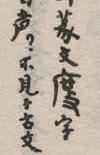 篆文廋字
声？不見于古文